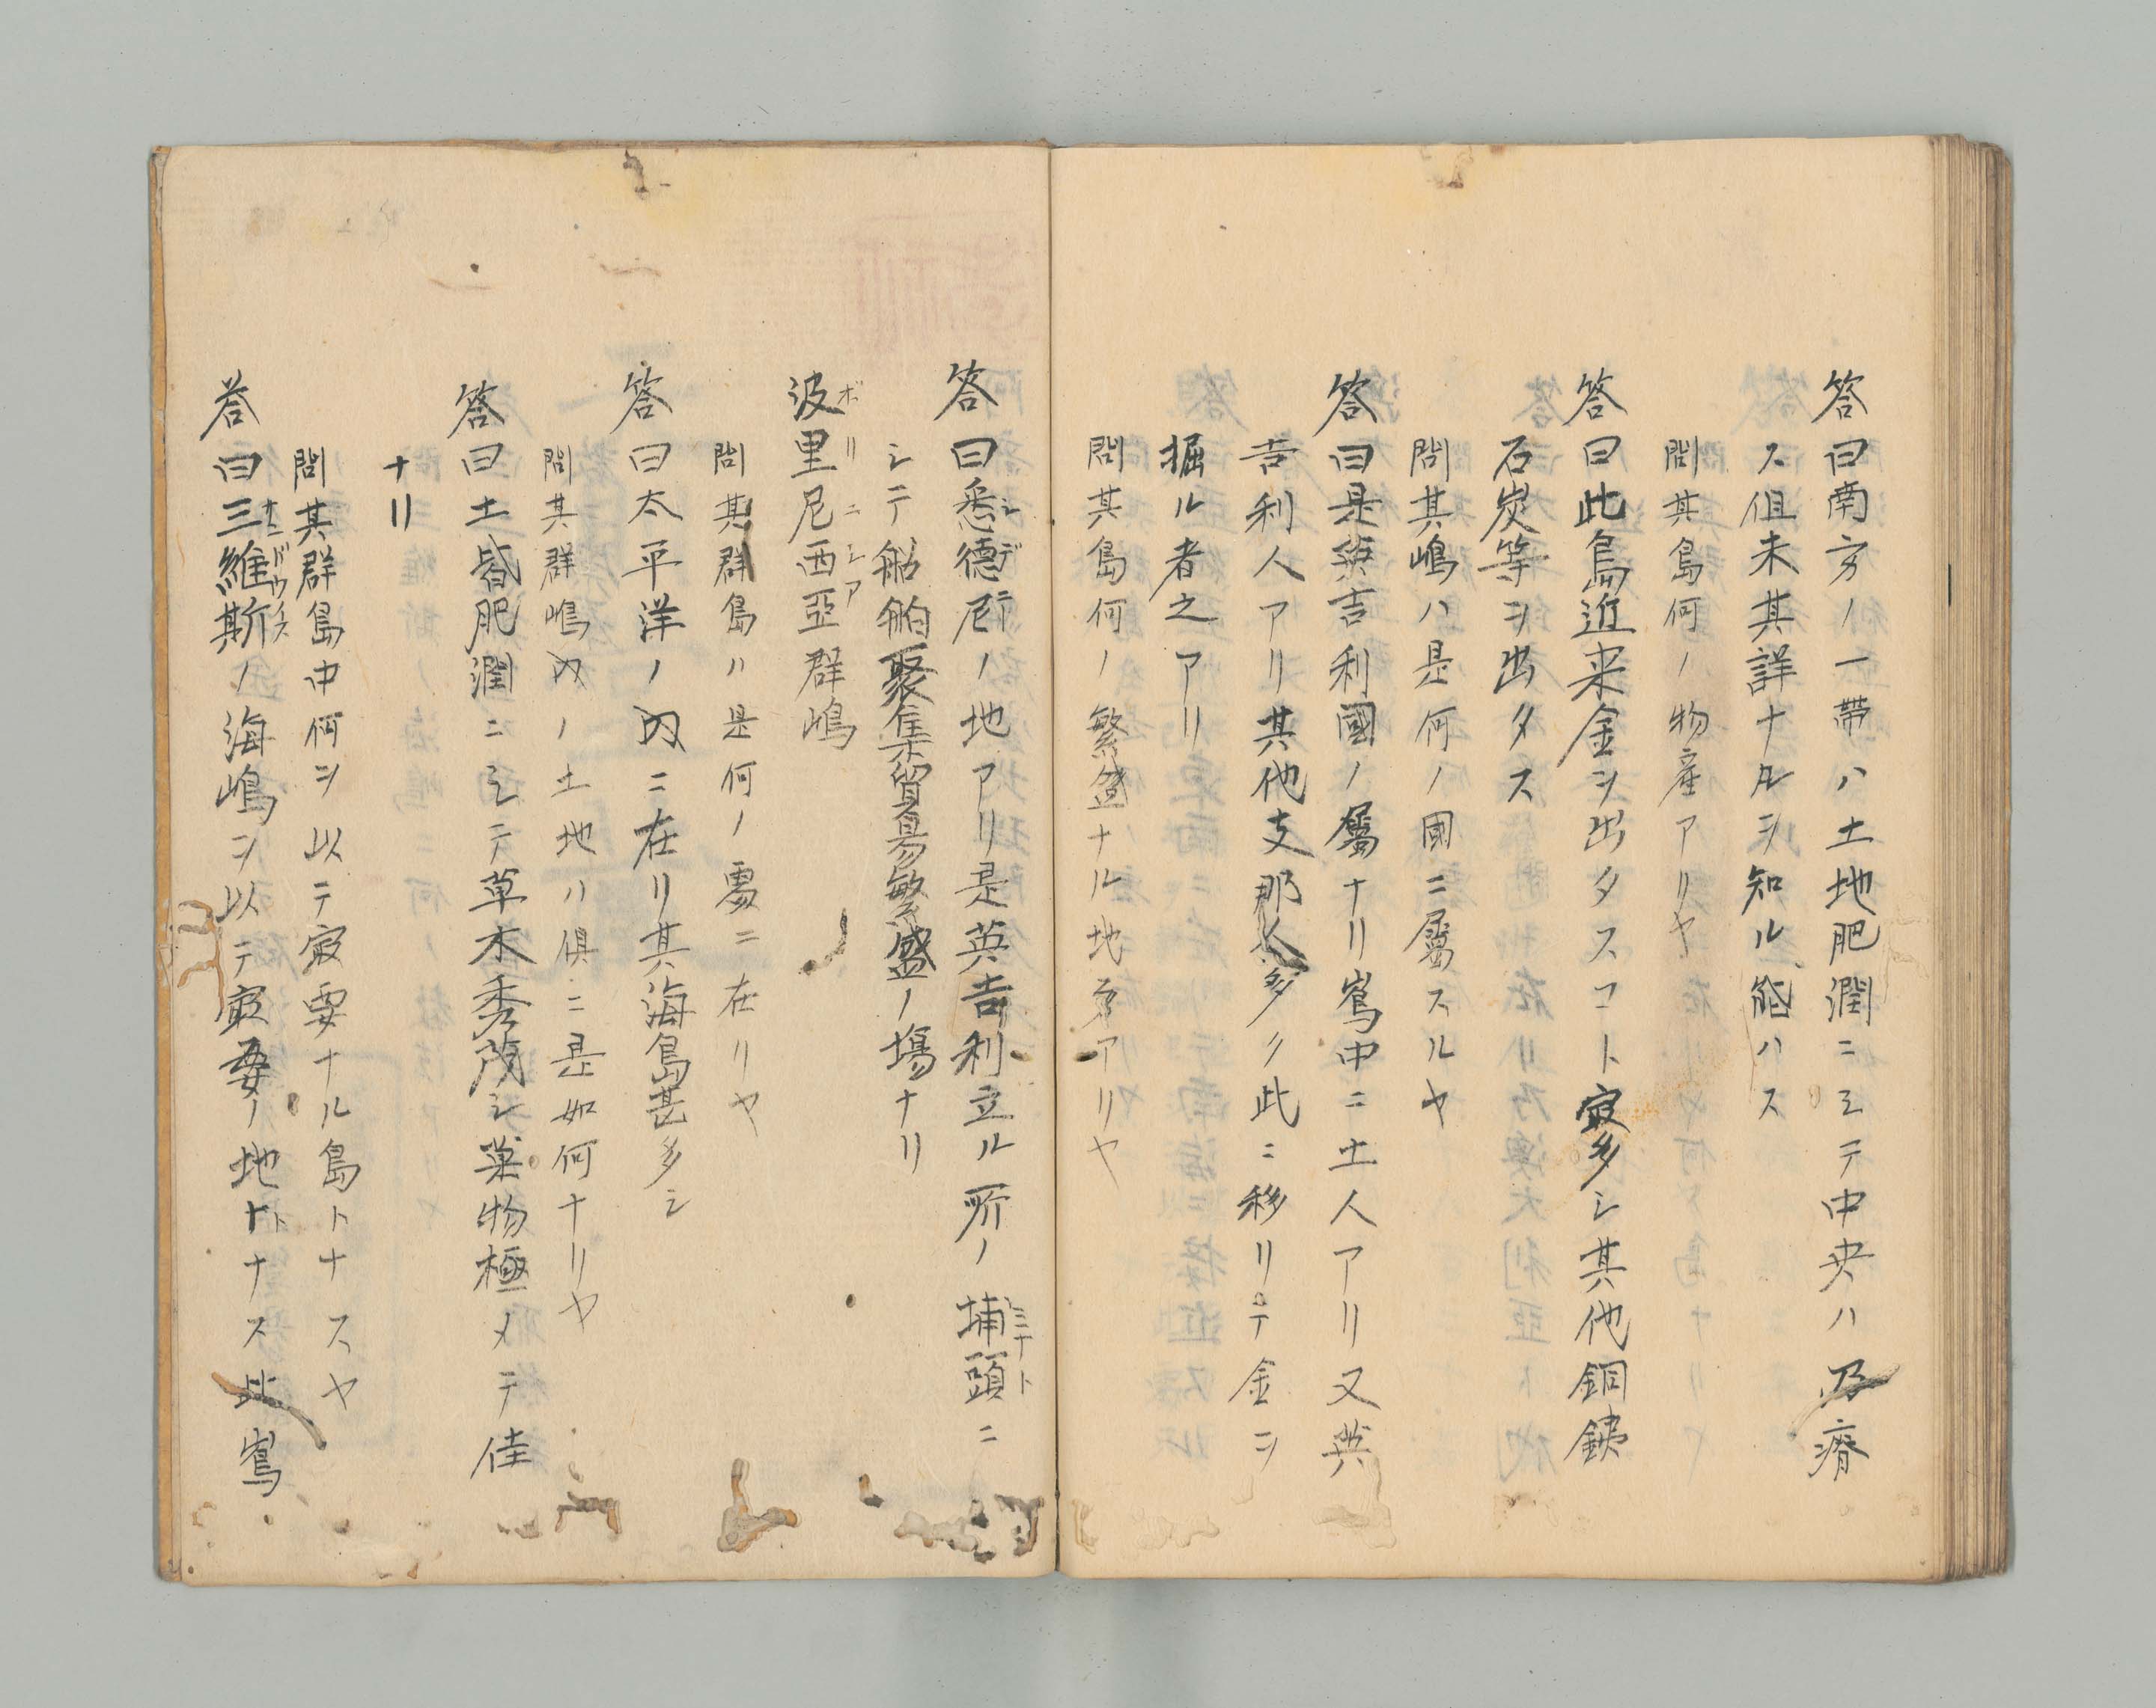 答曰南方ノ一帯ハ土地肥潤ニシテ中央ハ乃瘠
ス但未其詳ナルヲ知ル能ハス
問其島何ノ物産アリヤ
答曰此島近来金ヲ出タスコト寂多シ其他銅鉄
石炭等ヲ出タス
問其嶋ハ是何ノ国ニ屬スルヤ
答曰是英吉利國ノ屬ナリ嶌中ニ土人アリ又英
吉利人アリ其他支那人多ク此ニ移リテ金ヲ
掘ル者之アリ
問其島何ノ繁盛ナル地方アリヤ
答曰悉德尼ノ地アリ是英吉利立ル所ノ埔頭ニ
シデニー
ミナト
シテ船舶聚集貿易繁盛ノ場ナリ
波里尼西亞群嶋
ボリニシア
問其群島ハ是何ノ處ニ在リヤ
答曰太平洋ノ内ニ在リ其海島甚多シ
問其群嶋内ノ土地ハ俱ニ是如何ナリヤ
答曰土皆肥潤ニシテ草木秀茂シ菓物極メテ佳
ナリ
問其群島中何ヲ以テ寂要ナル島トナスヤ
答曰三維斯ノ海嶋ヲ以テ寂要ノ地トナス此嶌
サンドウイス
ト